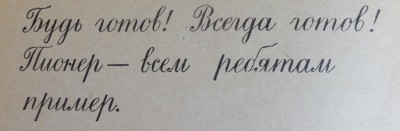 Будь готов! Всегда готов!
Пионер — всем ребятам
пример.